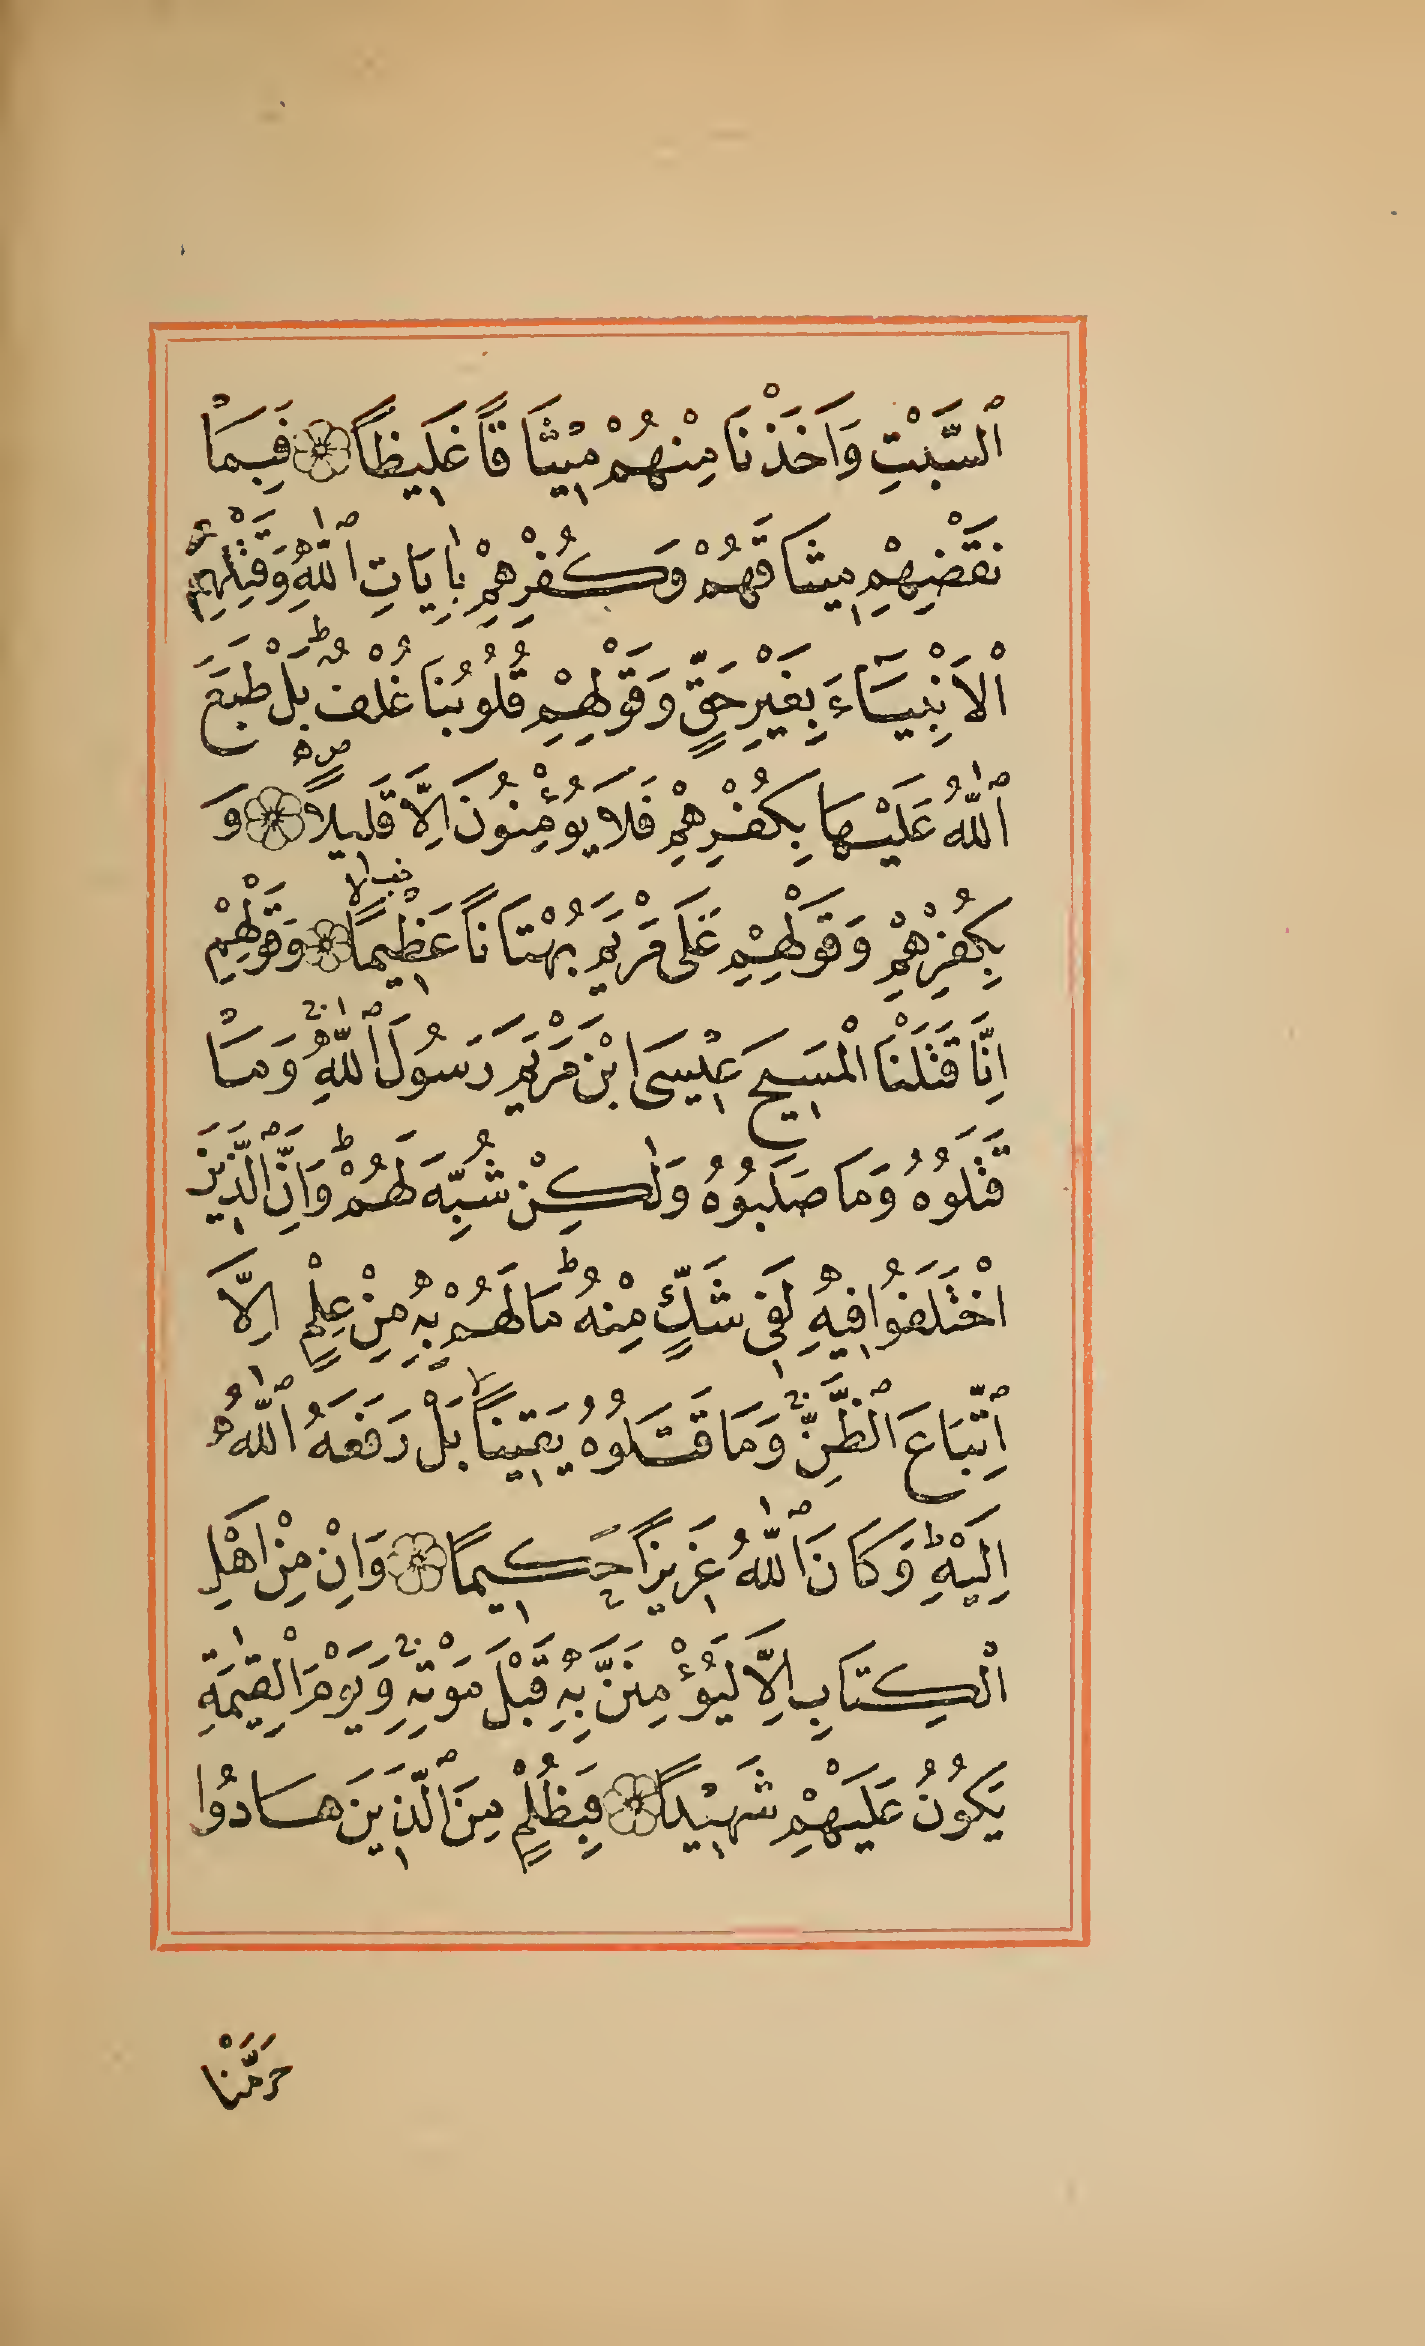 ٱلسَّبْتِ وَاَخَذْنَا مِنْهُمْ مٖيثَاقًا غَلٖيظًا ۞ فَبِمَا
نَقْضِهِمْ مٖيثَاقَهُمْ وَكُفْرِهِمْ بِاٰيَاتِ ٱللّٰهِ وَقَتْلِهِمُ
الْاَنْبِيَٓاءَ بِغَيْرِ حَقٍّ وَقَوْلِهِمْ قُلُوبُنَا غُلْفٌ ؕ بَلْ طَبَعَ
ٱللّٰهُ عَلَيْهَا بِكُفْرِهِمْ فَلَا يُؤْمِنُونَ اِلَّا قَلٖيلًا ۞ وَ
بِكُفْرِهِمْ وَقَوْلِهِمْ عَلَى مَرْيَمَ بُهْتَانًا عَظٖيمًا ۞ وَقَوْلِهِمْ
اِنَّا قَتَلْنَا الْمَسٖيحَ عٖيسَى ابْنَ مَرْيَمَ رَسُولَ ٱللّٰهِ ۚ وَمَا
قَتَلُوهُ وَمَا صَلَبُوُهُ وَلٰكِنْ شُبِّهَ لَهُمْ ؕ وَاِنَّ ٱلَّذٖينَ
اخْتَلَفُوا فٖيهِ لَفٖى شَكٍّ مِنْهُ ؕ مَا لَهُمْ بِهٖ مِنْ عِلْمٍ اِلَّا
ٱتِّبَاعَ ٱلظَّنِّ ۚ وَمَا قَتَلُوهُ يَقٖينًا ۙ بَلْ رَفَعَهُ ٱللّٰهُ
اِلَيْهِ ؕ وَكَانَ ٱللّٰهُ عَزٖيزًا حَكٖيمًا ۞ وَاِنْ مِنْ اَهْلِ
الْكِتَابِ اِلَّا لَيُؤْمِنَنَّ بِهٖ قَبْلَ مَوْتِهٖ ۚ وَيَوْمَ الْقِيٰمَةِ
يَكُونُ عَلَيْهِمْ شَهٖيدًا ۞ فَبِظُلْمٍ مِنَ ٱلَّذٖينَ هَادُوا
حَرَّمْنَا